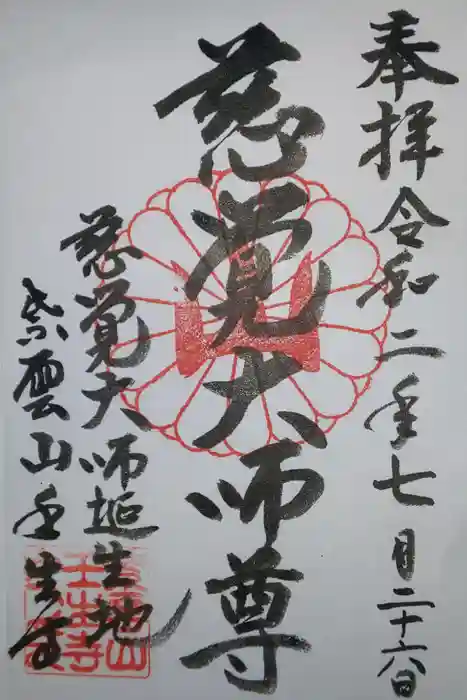 奉拝 令和二年七月二十六日
慈覚大師尊
慈覚大師誕生地
紫雲山壬生寺